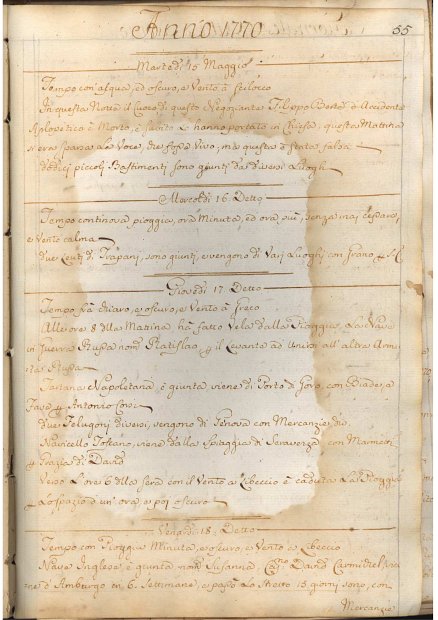 Anno 1770
55
Martedì 15 Maggio
Tempo con aqua, ed oscuro, e Vento à Scilocco
In questa Notte il Cuoco di questo Negoziante Filippo Berte d'Accidente
Apopletico è Morto, e subito lo hanno portato in Chiesa, questa Mattina
si era sparsa la Voce, che fosse Vivo, mà questa è stata falsa
Dodici piccoli Bastimenti sono giunti da diversi Luoghi
Mercoldì 16 Detto
Tempo continova pioggia, ora Minuta, ed ora più, senza mai cessare,
e Vento calma
due Leuti di Trapani, sono giunti, e vengono di Vari Luoghi con Grano
Giovedì 17 Detto
Tempo frà chiaro, e oscuro, e Vento à Greco
Alle ore 8 della Matina hà fatto Vela dalla Spiaggia, La Nave
in Guerra Russa nom Ratislao, p il Levante ad Unirsi all'altra Arma
ta Russa
Tartana Napoletana, è giunta viene di Porto di Goro, con Biade, a
Fave p Antonio Corsi
due Felugoni diversi, vengono di Genova con Mercanzie, div
Navicello Toscano, viene dalla Spiaggia di Seravezza, con Marmetti
p Grazia di David
Verso L'ore 6 della sera con il Vento a Libeccio è caduta La Pioggia
Lo spazio d'un ora, e poi oscuro
Venerdì 18 Detto
Tempo con Pioggia Minuta, e oscuro, e Vento a Libeccio
Nave Inglese è giunta nom Susanna, Cap.no David Carmichel, vie
ne d'Amburgo in 6 Settimane, e passò lo Stretto 15 giorni sono, con
Mercanzie